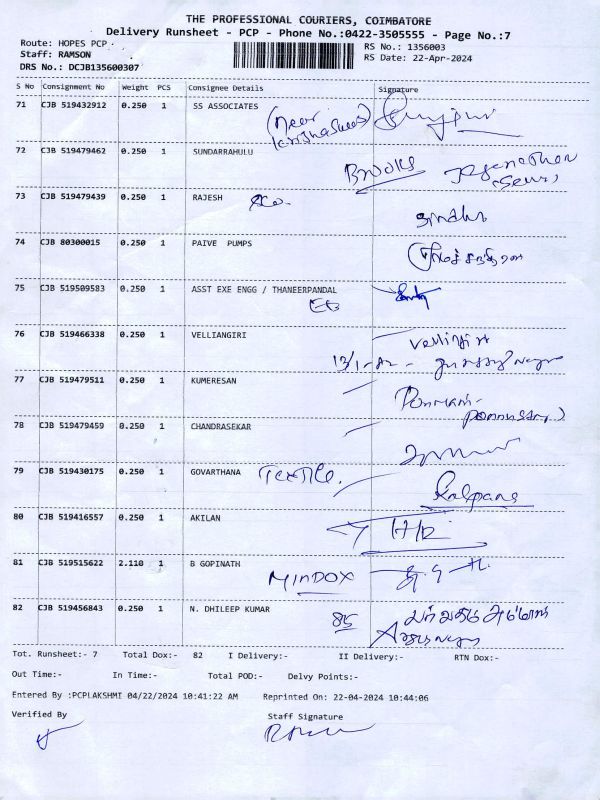 THE PROFESSIONAL COURIERS, COIMBATORE
Delivery Runsheet - PCP - Phone No.:0422-3505555 - Page No.:7
Route: HOPES PCP
RS No.: 1356003
Staff: RAMSON
RS Date: 22-Apr-2024
DRS No.: DCJB135600307
S No Consignment No Weight PCS Consignee Details Signature
71 CJB 519432912 0.250 1 SS ASSOCIATES
(Near
72 CJB 519479462 0.250 1 SUNDARRAHULU
Brooks
73 CJB 519479439 0.250 1 RAJESH
Sindhu
74 CJB 80300015 0.250 1 PAIVE PUMPS
75 CJB 519509583 0.250 1 ASST EXE ENGG / THANEERPANDAL
EB
76 CJB 519466338 0.250 1 VELLIANGIRI
77 CJB 519479511 0.250 1 KUMERESAN
78 CJB 519479459 0.250 1 CHANDRASEKAR
79 CJB 519430175 0.250 1 GOVARTHANA Textile.
Kalpana
80 CJB 519416557 0.250 1 AKILAN
81 CJB 519515622 2.110 1 B GOPINATH
MINDOX
82 CJB 519456843 0.250 1 N. DHILEEP KUMAR
85
Tot. Runsheet:- 7 Total Dox:- 82 I Delivery:- II Delivery:- RTN Dox:-
Out Time:- In Time:- Total POD:- Delvy Points:-
Entered By :PCPLAKSHMI 04/22/2024 10:41:22 AM Reprinted On: 22-04-2024 10:44:06
Verified By Staff Signature